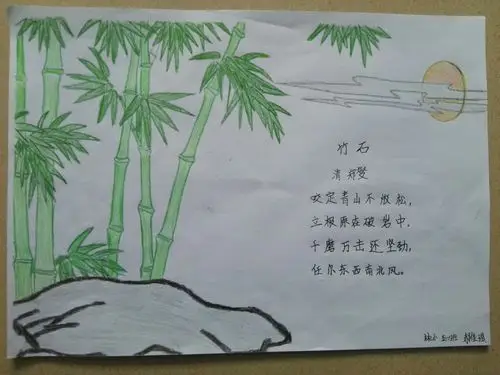 竹石
清 郑燮
咬定青山不放松,
立根原在破岩中,
千磨万击还坚劲,
任尔东西南北风。